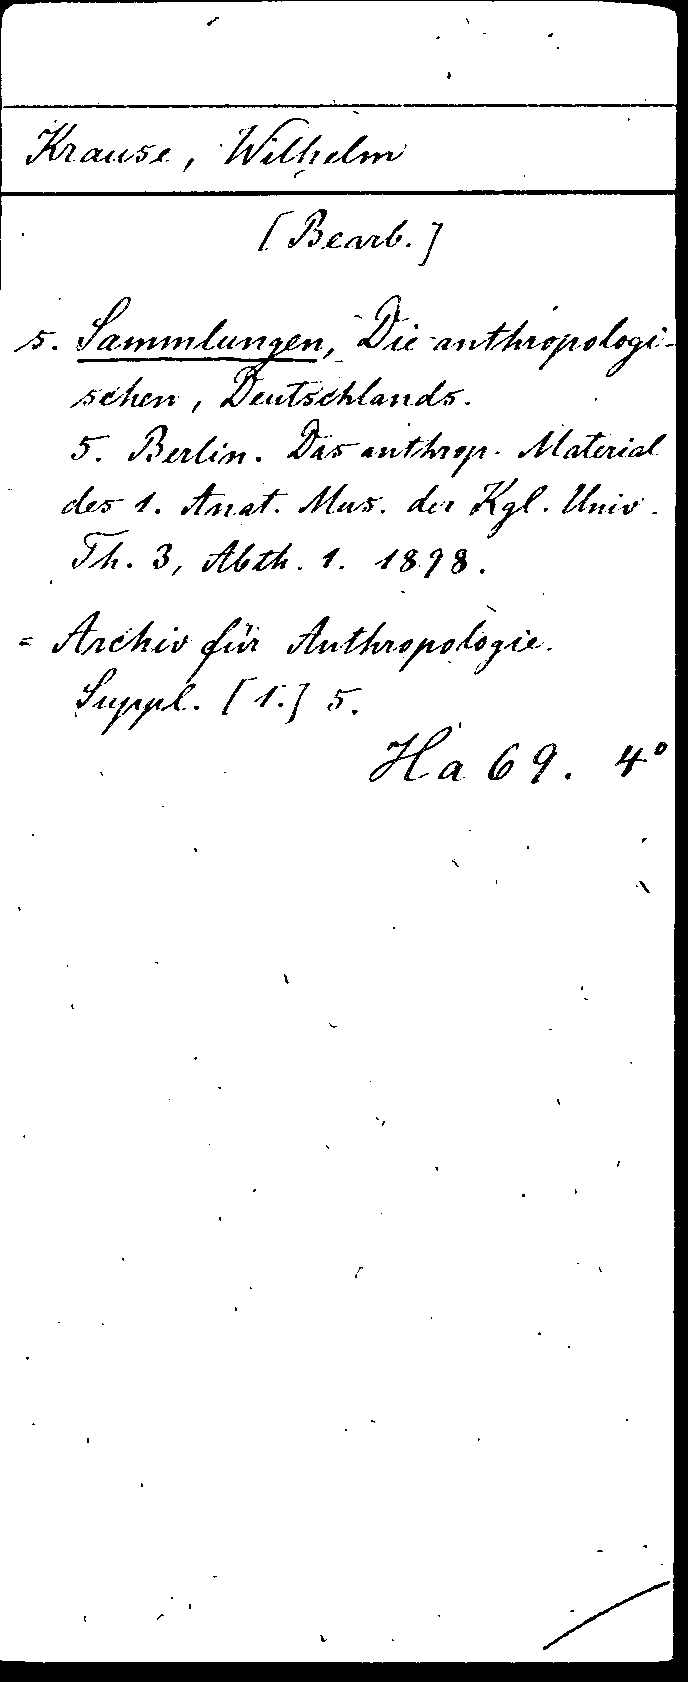 Krause, Wilhelm
[Bearb.]
s. Sammlungen, Die anthropologi-
schen, Deutschlands.
5. Berlin. Das anthrop. Material
des 1. Anat. Mus. der Kgl. Univ.
Th. 3, Abth. 1. 1898.
= Archiv für Anthropologie.
Suppl. [1.] 5.
Ha 69. 4°